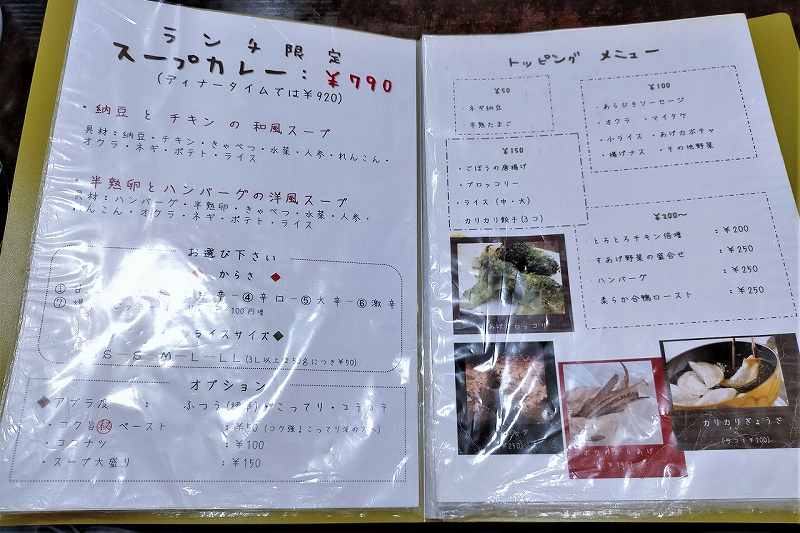 ランチ限定
スープカレー:¥790
(ディナータイムでは¥920)
・納豆とチキンの和風スープ
具材:納豆・チキン・きゃべつ・水菜・人参・れんこん・
オクラ・ネギ・ポテト・ライス
・半熟卵とハンバーグの洋風スープ
具材:ハンバーグ・半熟卵・きゃべつ・水菜・人参・
れんこん・オクラ・ネギ・ポテト・ライス
お選び下さい
◆からさ◆
④辛口-⑤大辛-⑥激辛
100円増
ライスサイズ◆
S-M-L-LL
オプション
◆アブラ度 : ふつう
・コク旨㊙ペースト :¥50
・ココナツ :¥100
・スープ大盛り :¥150
トッピング メニュー
¥50
・ネギ納豆
・半熟たまご
¥100
・あらびきソーセージ
・オクラ・マイタケ
・小ライス・あげカボチャ
・揚げナス・その他野菜
¥150
・ごぼうの唐揚げ
・ブロッコリー
・ライス(中・大)
カリカリ餃子(3コ)
¥200~
・とろとろチキン倍増 :¥200
・すあげ野菜の盛合せ :¥250
・ハンバーグ :¥250
・柔らか合鴨ロースト :¥250
あげブロッコリ
カリカリぎょうざ